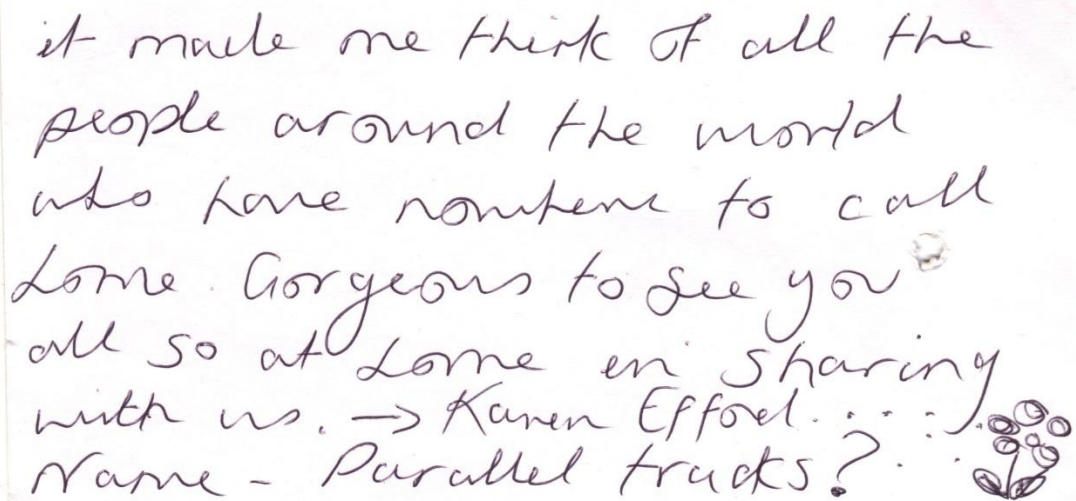 it made me think of all the
people around the world
who have nowhere to call
home. Gorgeous to see you
all so at home in sharing
with us. → Karen Efford.....
Name - Parallel tracks?